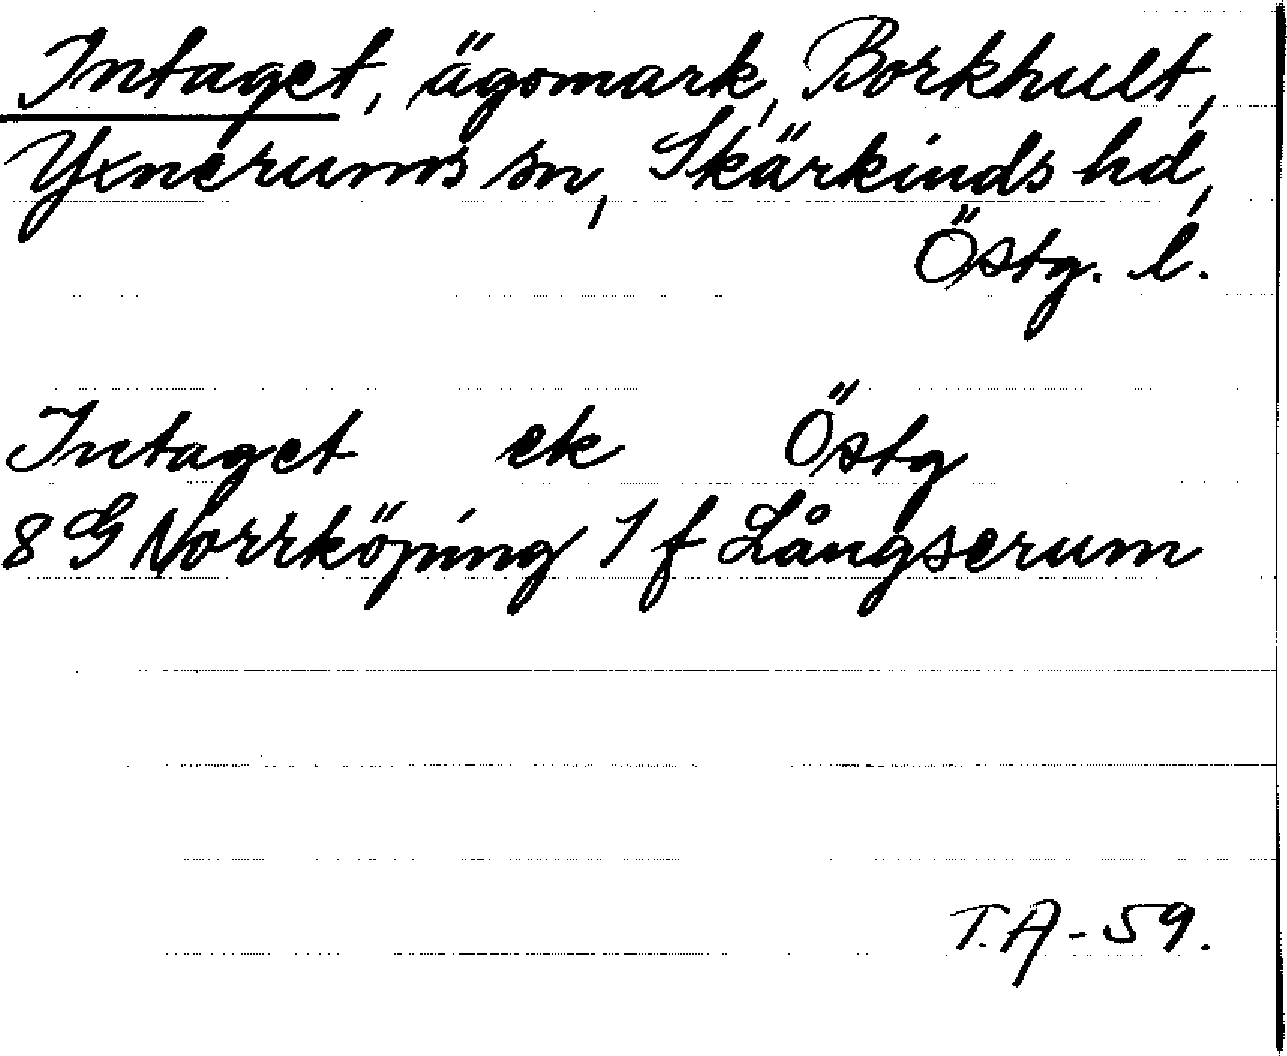 Intaget, ägomark, Borkhult,
Yxnerums sn, Skärkinds hd,
Östg. l.
Intaget ek Östg
8 G Norrköping 1 f Långserum
T.A-59.